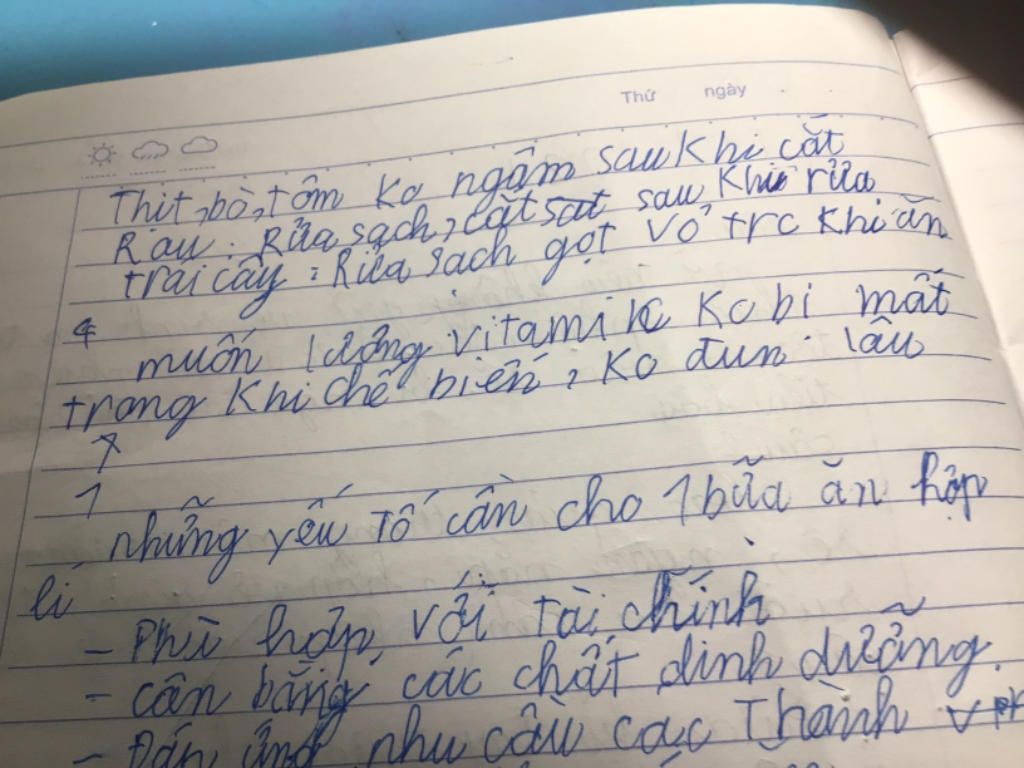 Thứ ngày
Thịt, bò, tôm Ko ngâm sau Khi cắt
Rau : Rửa sạch, cắt sau Khi rửa
trái cây : Rửa sạch gọt vỏ trc Khi ăn
4
muốn lượng vitamin C Ko bị mất
trong Khi chế biến, Ko đun lâu
7
1
những yếu tố cần cho 1 bữa ăn hợp
lí
- Phù hợp với tài chính
- cân bằng các chất dinh dưỡng.
- Đáp ứng nhu cầu các Thành